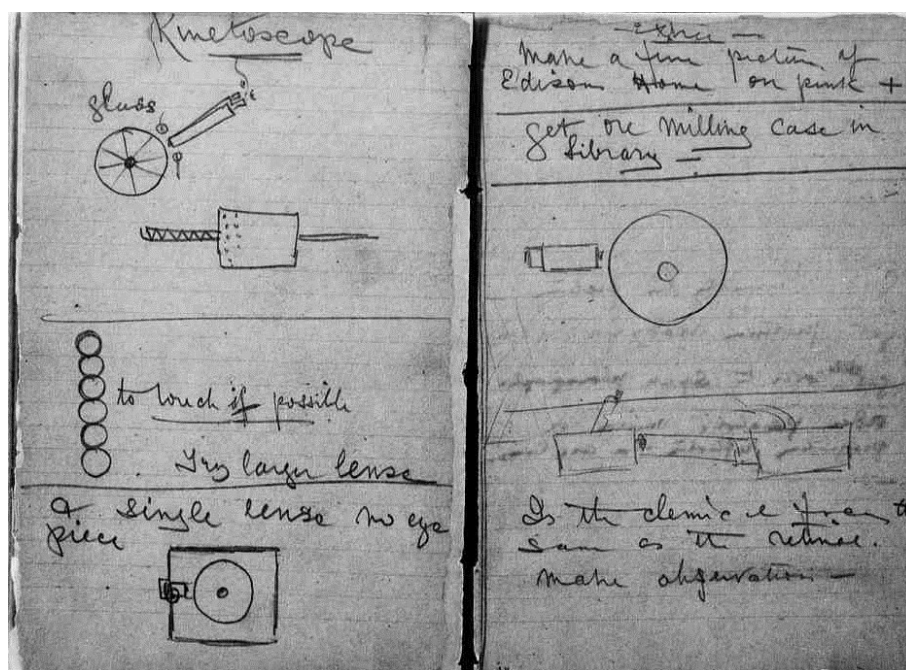 Kinetoscope
glass
to touch if possible
Try larger lense
& single lense no eye
piece
Make a fine picture of
Edisons Home on pink +
get ore milling case in
Library —
Is the chemical
same as the retinae.
make observation —